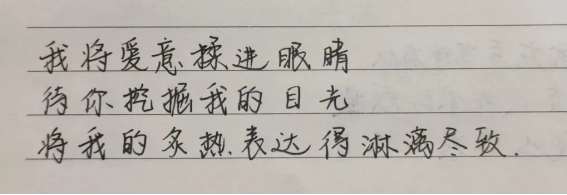 我将爱意揉进眼睛
待你挖掘我的目光
将我的炙热.表达得淋漓尽致.